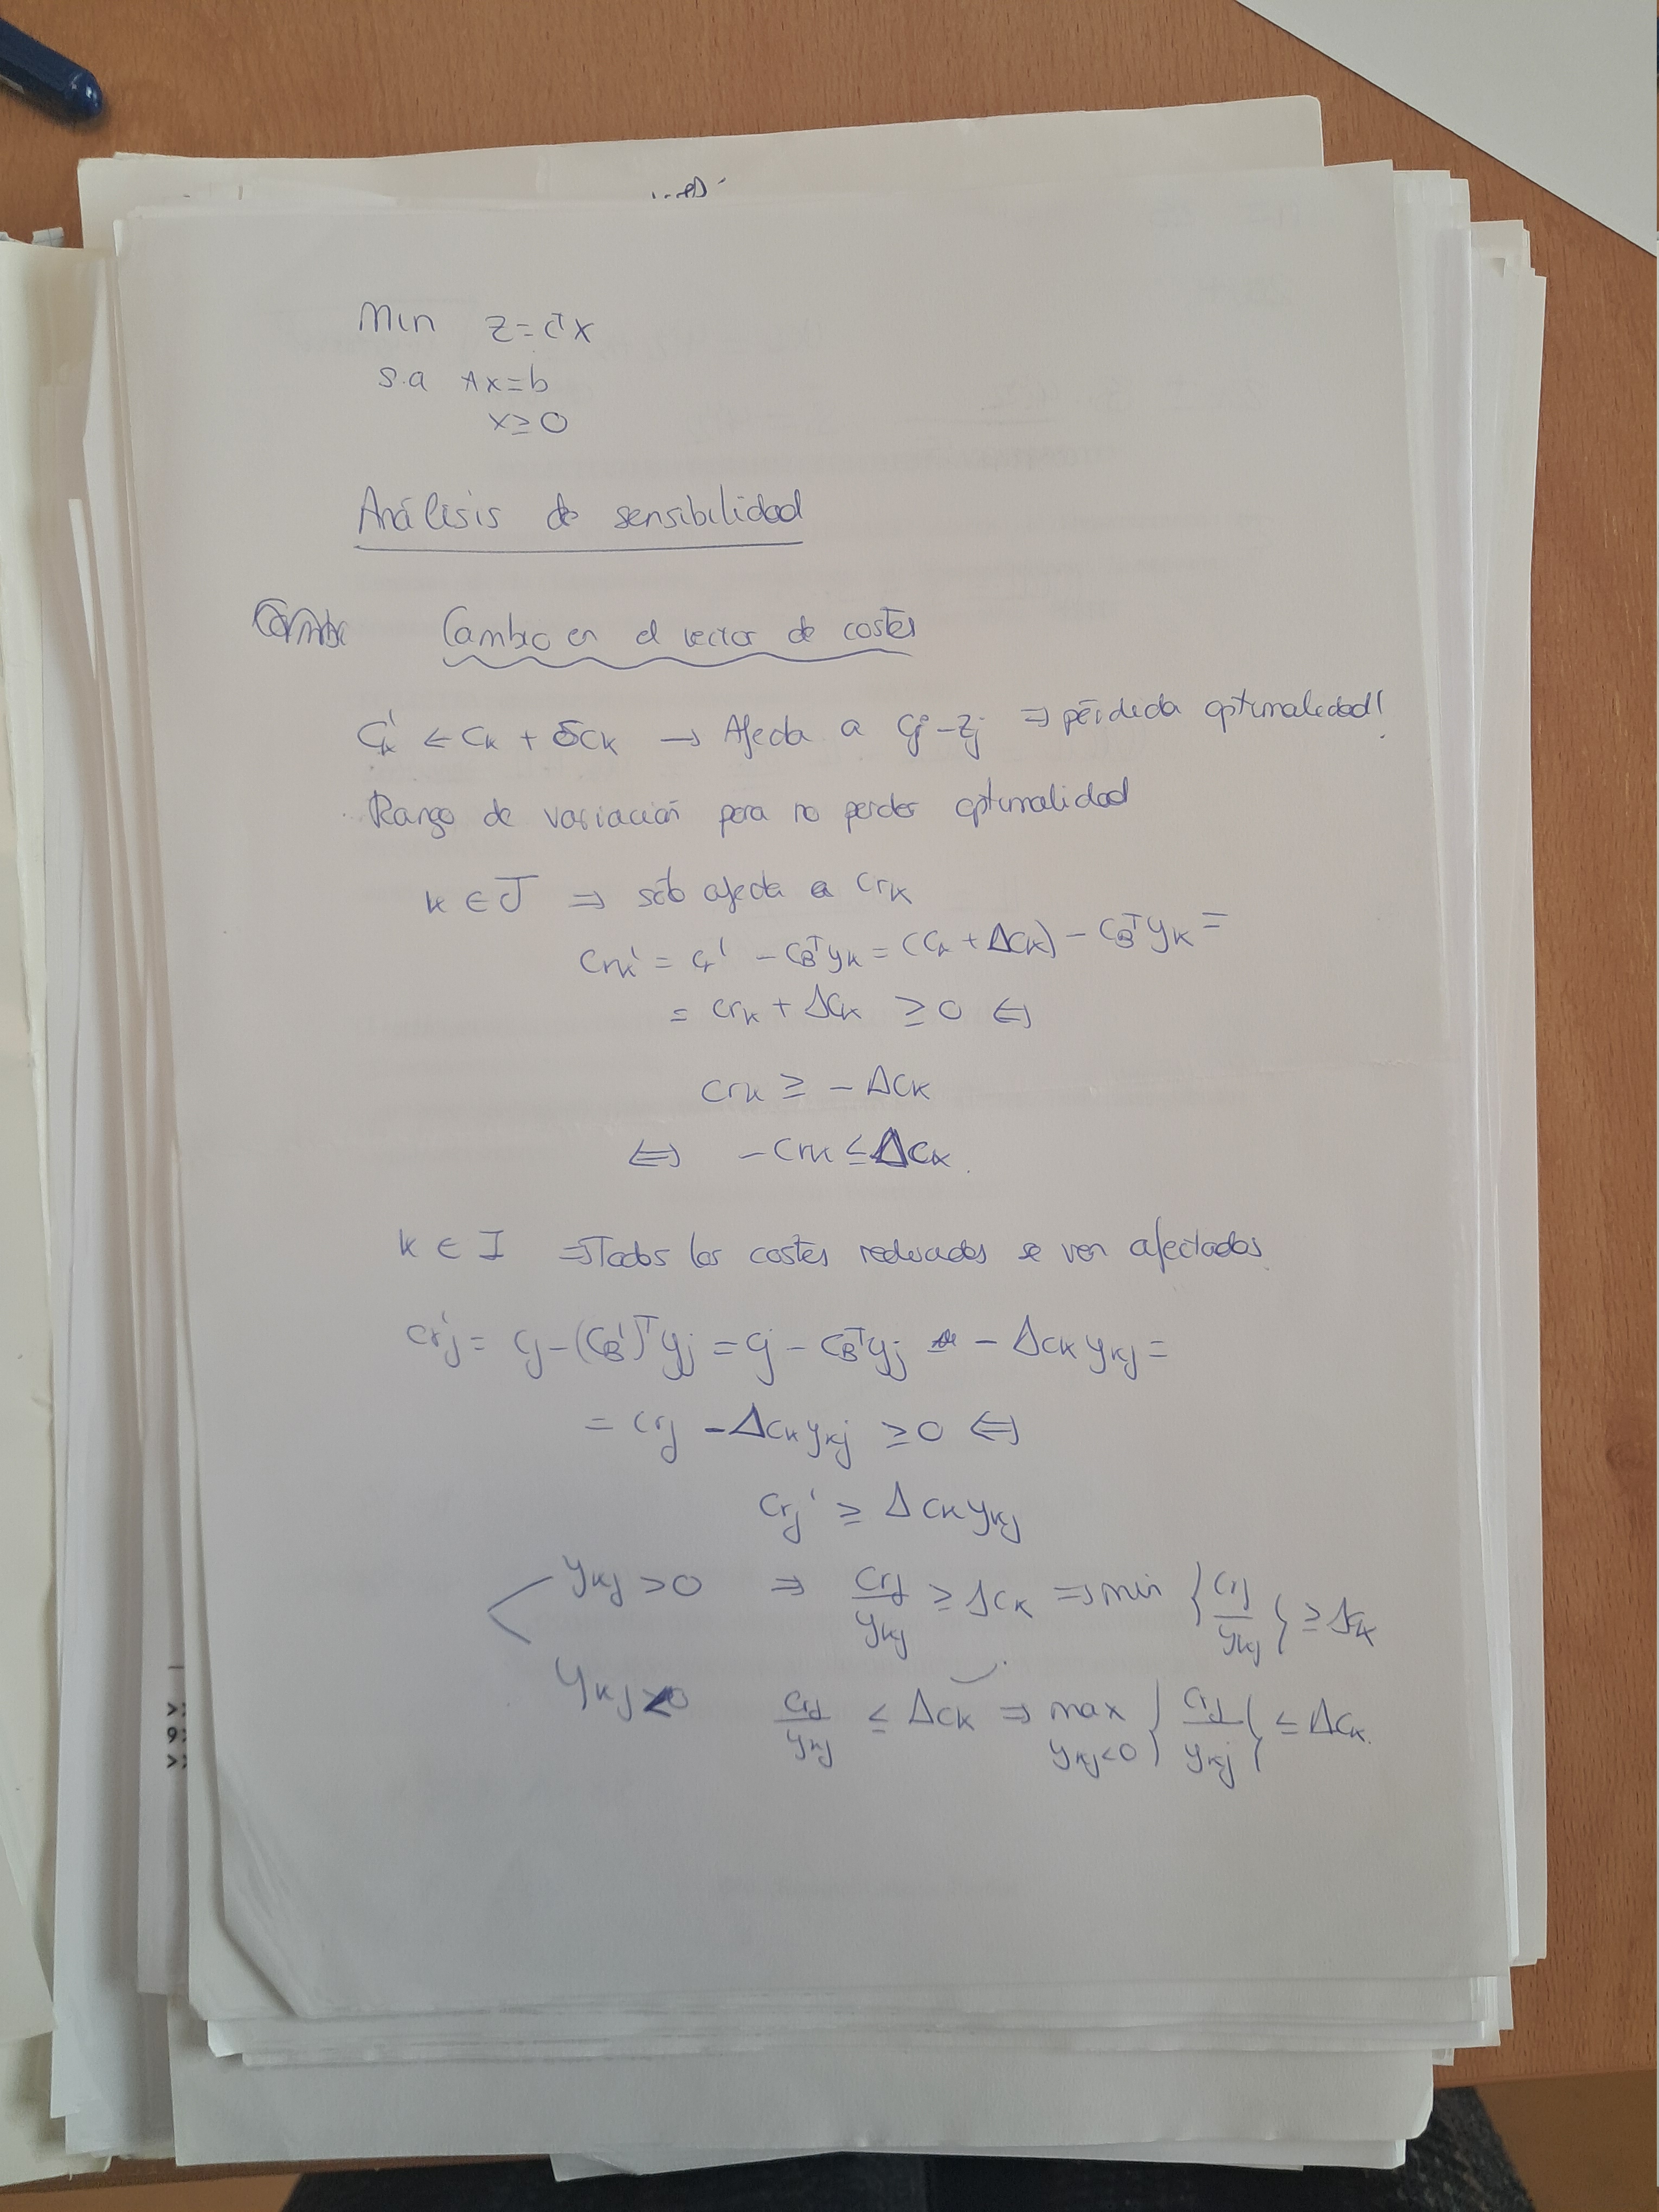 Min z = cᵀx
s.a Ax = b
x ≥ 0
Análisis de sensibilidad
Cambio en el vector de costes
Ck' ← Ck + δCk → Afecta a Cj - Zj ⇒ pérdida optimalidad!
Rango de variación para no perder optimalidad
k ∈ J ⇒ solo afecta a Crk
Crk' = Ck' - CBᵀyk = (Ck + ΔCk) - CBᵀyk =
= Crk + ΔCk ≥ 0 ⇔
Crk ≥ - ΔCk
⇔ - Crk ≤ ΔCk
k ∈ I ⇒ Todos los costes reducidos se ven afectados
Crj' = Cj - (CB')ᵀyj = Cj - CBᵀyj - ΔCk ykj =
= Crj - ΔCk ykj ≥ 0 ⇔
Crj' ≥ ΔCk ykj
ykj > 0 ⇒ Crj/ykj ≥ ΔCk ⇒ min {Crj/ykj} ≥ ΔCk
ykj < 0 Crj/ykj ≤ ΔCk ⇒ max ykj<0 {Crj/ykj} ≤ ΔCk